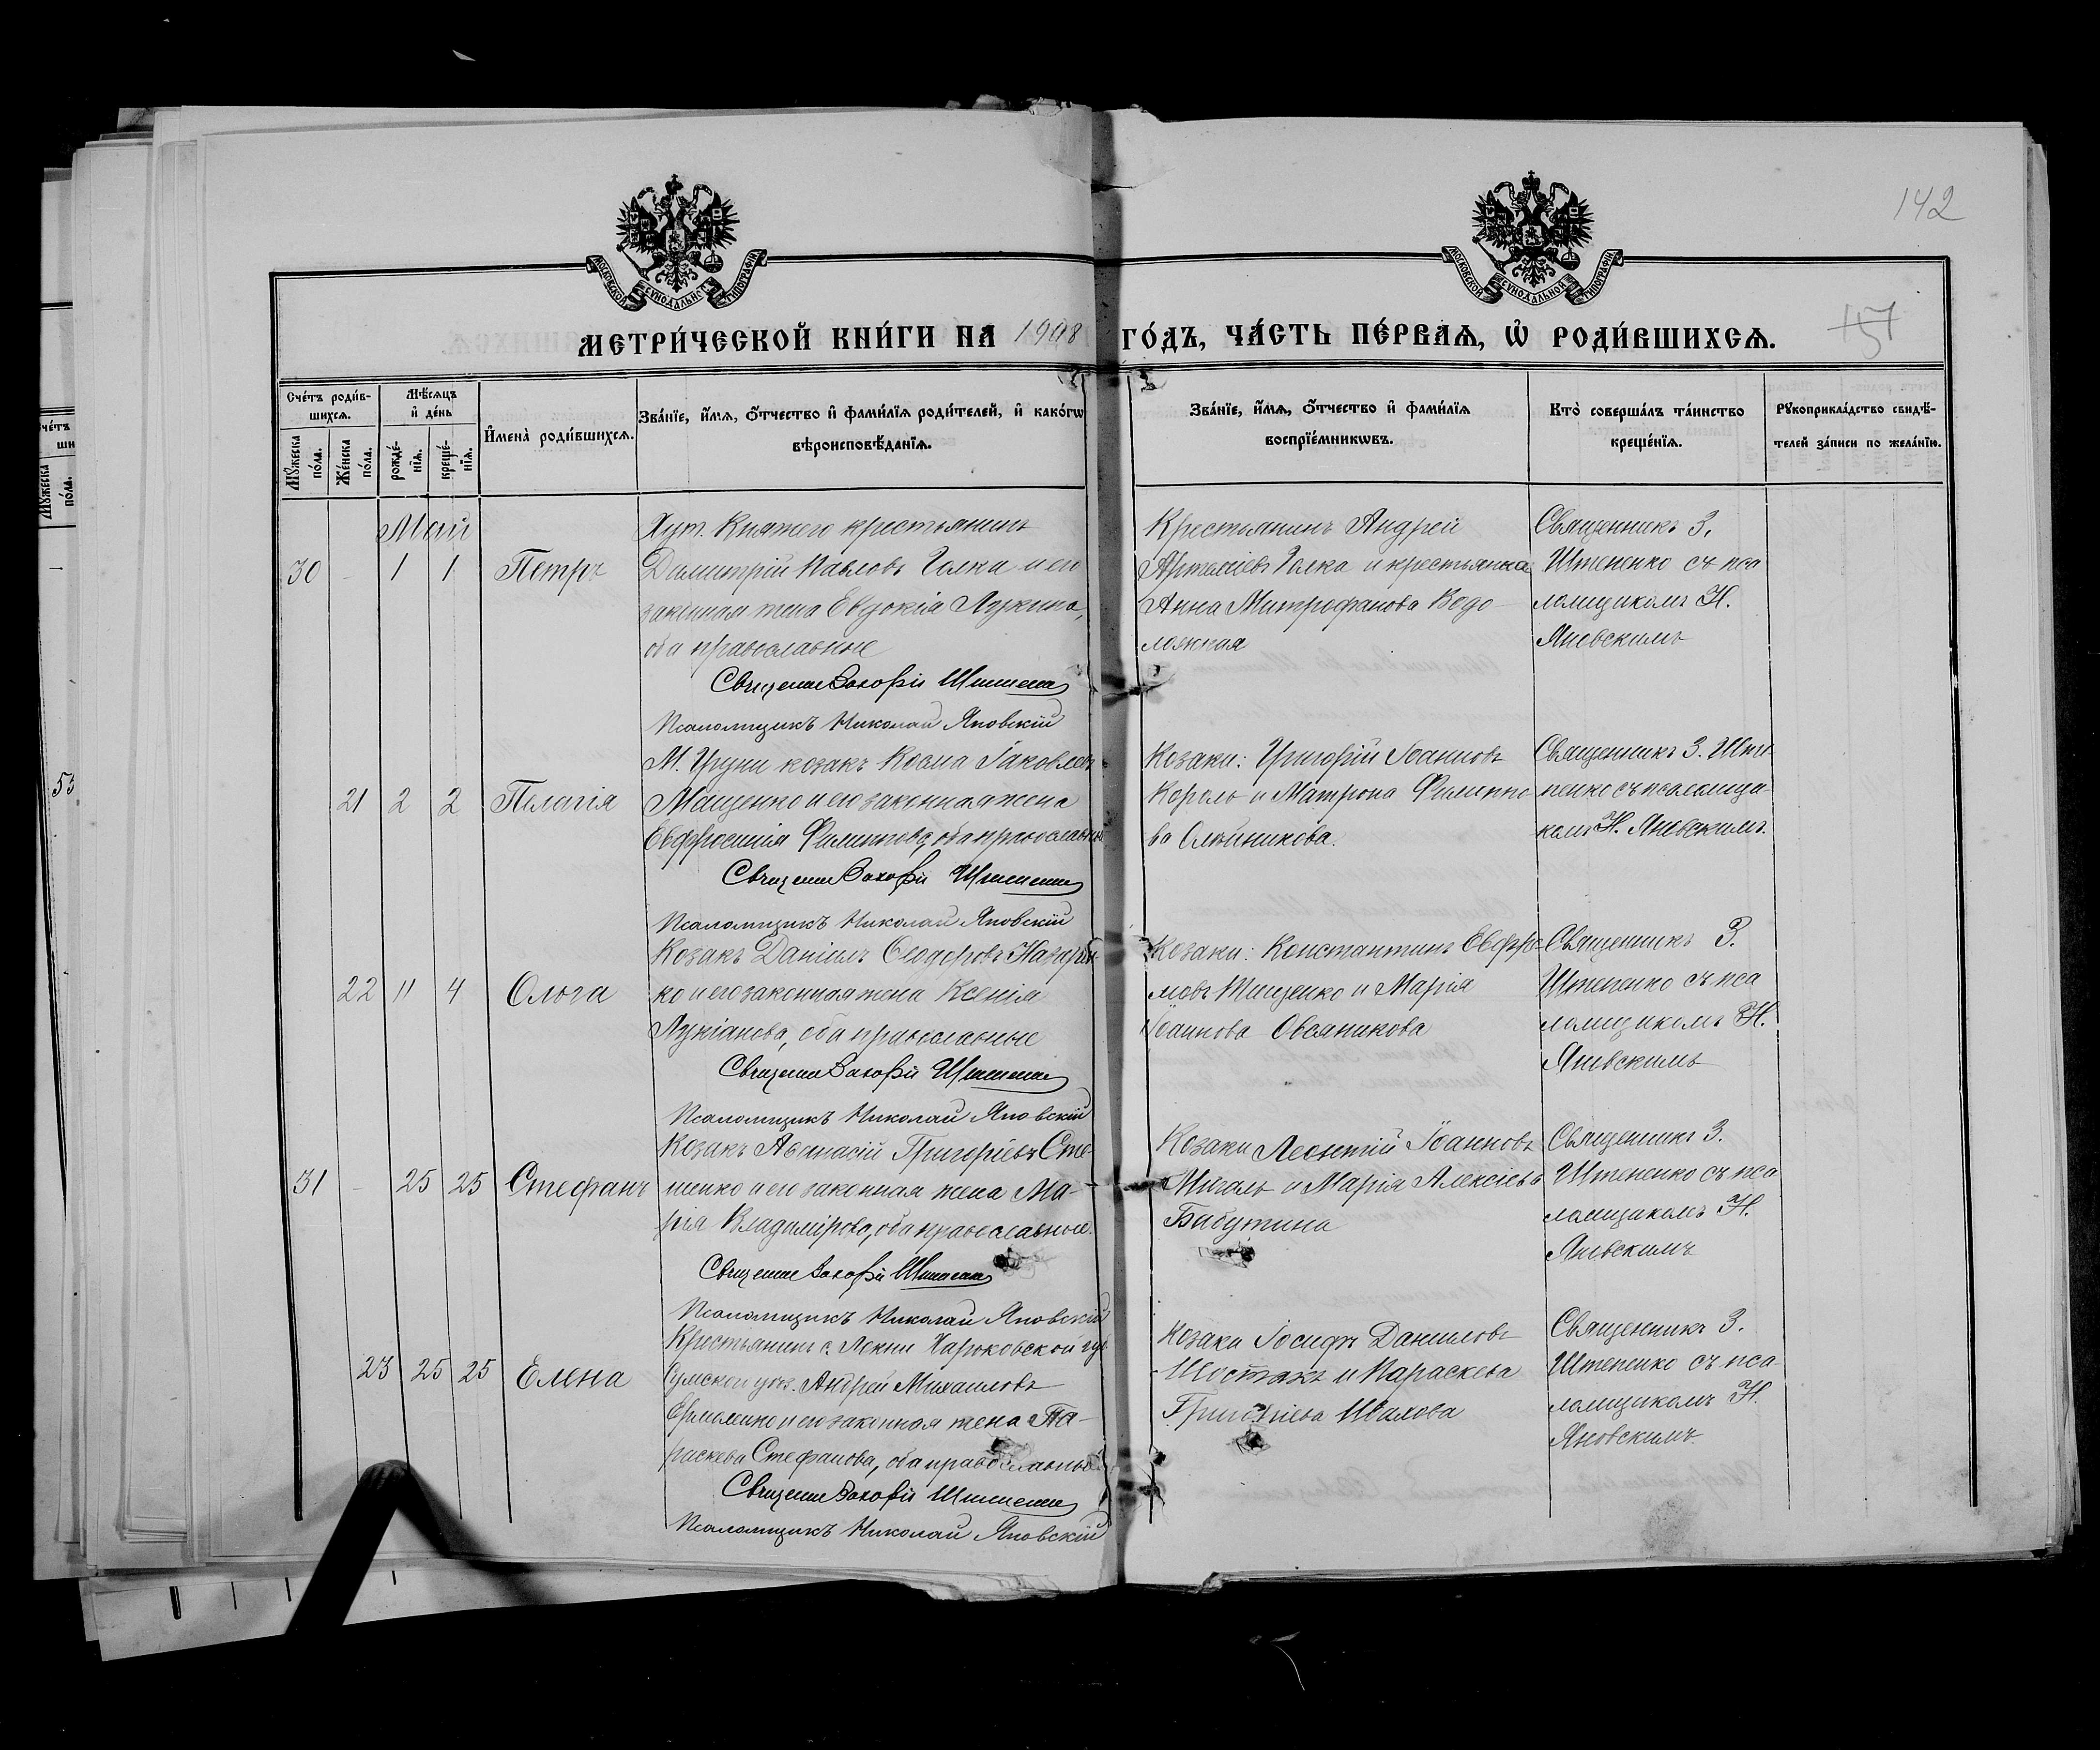 142
МОСКОВСКОЙ СѴНОДАЛЬНОЙ ТИПОГРАФІИ
МОСКОВСКОЙ СѴНОДАЛЬНОЙ ТИПОГРАФІИ
МЕТРИ́ЧЕСКОЙ КНИ́ГИ НА 1908 ГО́ДЪ, ЧА́СТЬ ПЕ́РВАѦ, Ѡ҆ РОДИ́ВШИХСѦ.
Сче́тъ роди́вшихсѧ.
Мѣ́сѧцъ и҆ де́нь
И҆мена̀ роди́вшихсѧ.
Зва́нїе, и҆́мѧ, ѻ҆́тчество и҆ фами́лїѧ роди́телей, и҆ како́гѡ
вѣроисповѣ́данїѧ.
Зва́нїе, и҆́мѧ, ѻ҆́тчество и҆ фами́лїѧ
воспрїе́мникѡвъ.
Кто̀ соверша́лъ та́инство
креще́нїѧ.
Рꙋкоприкла́дство свидѣ́-
телей за́писи по жела́нїю.
Мꙋжеска по́ла.
Же́нска по́ла.
рожде́-
нїѧ.
креще́-
нїѧ.
Май
30 - 1 1 Петръ
Хут. Княжего крестьянинъ
Димитрій Павловъ Галка и его
законная жена Евдокія Лукина,
оба православные
Псаломщикъ Николай Яновскій
Крестьянинъ Андрей
Галка и крестьянка
Анна Митрофанова Водо-
ложная
Священникъ З.
Штепенко съ пса
ломщикомъ Н.
Яновскимъ
21 2 2 Пелагія
М. Груни козакъ Косма Іаковлевъ
Мащенко и его законная жена
Евфросинія Филиппова, оба православные
Псаломщикъ Николай Яновскій
Козаки: Григорій Іоанновъ
Король и Матрона Филиппо-
ва Олейникова.
Священникъ З.Ште
пенко съ псаломщи-
комъ Н. Яновскимъ.
22 11 4 Ольга
Козакъ Даніилъ Ѳеодоровъ Назарен
ко и его законная жена Ксенія
Лукіанова, оба православные
Псаломщикъ Николай Яновскій
Козаки: Константинъ Евфре-
мовъ Тищенко и Марія
Іоаннова Овсяникова
Священникъ З.
Штепенко съ пса
ломщикомъ Н.
Яновскимъ
31 - 25 25 Стефанъ
Козакъ Аѳанасій Григоріевъ Сте-
ценко и его законная жена Ма-
рія Владимірова, оба православные.
Псаломщикъ Николай Яновскій
Козаки Леонтій Іоанновъ
Шигаль и Марія Алексіева
Бабутина
Священникъ З.
Штепенко съ пса
ломщикомъ Н.
Яновскимъ
23 25 25 Елена
Крестьянинъ с. Харьковской губ.
Сумского уѣз. Андрей Михаиловъ
Ермоленко и его законная жена Па-
раскева Стефанова, оба православные
Псаломщикъ Николай Яновскій
Козаки Іосифъ Даниловъ
Шостакъ и Параскева
Григоріева Ивахова
Священникъ З.
Штепенко съ пса-
ломщикомъ Н.
Яновскимъ
53